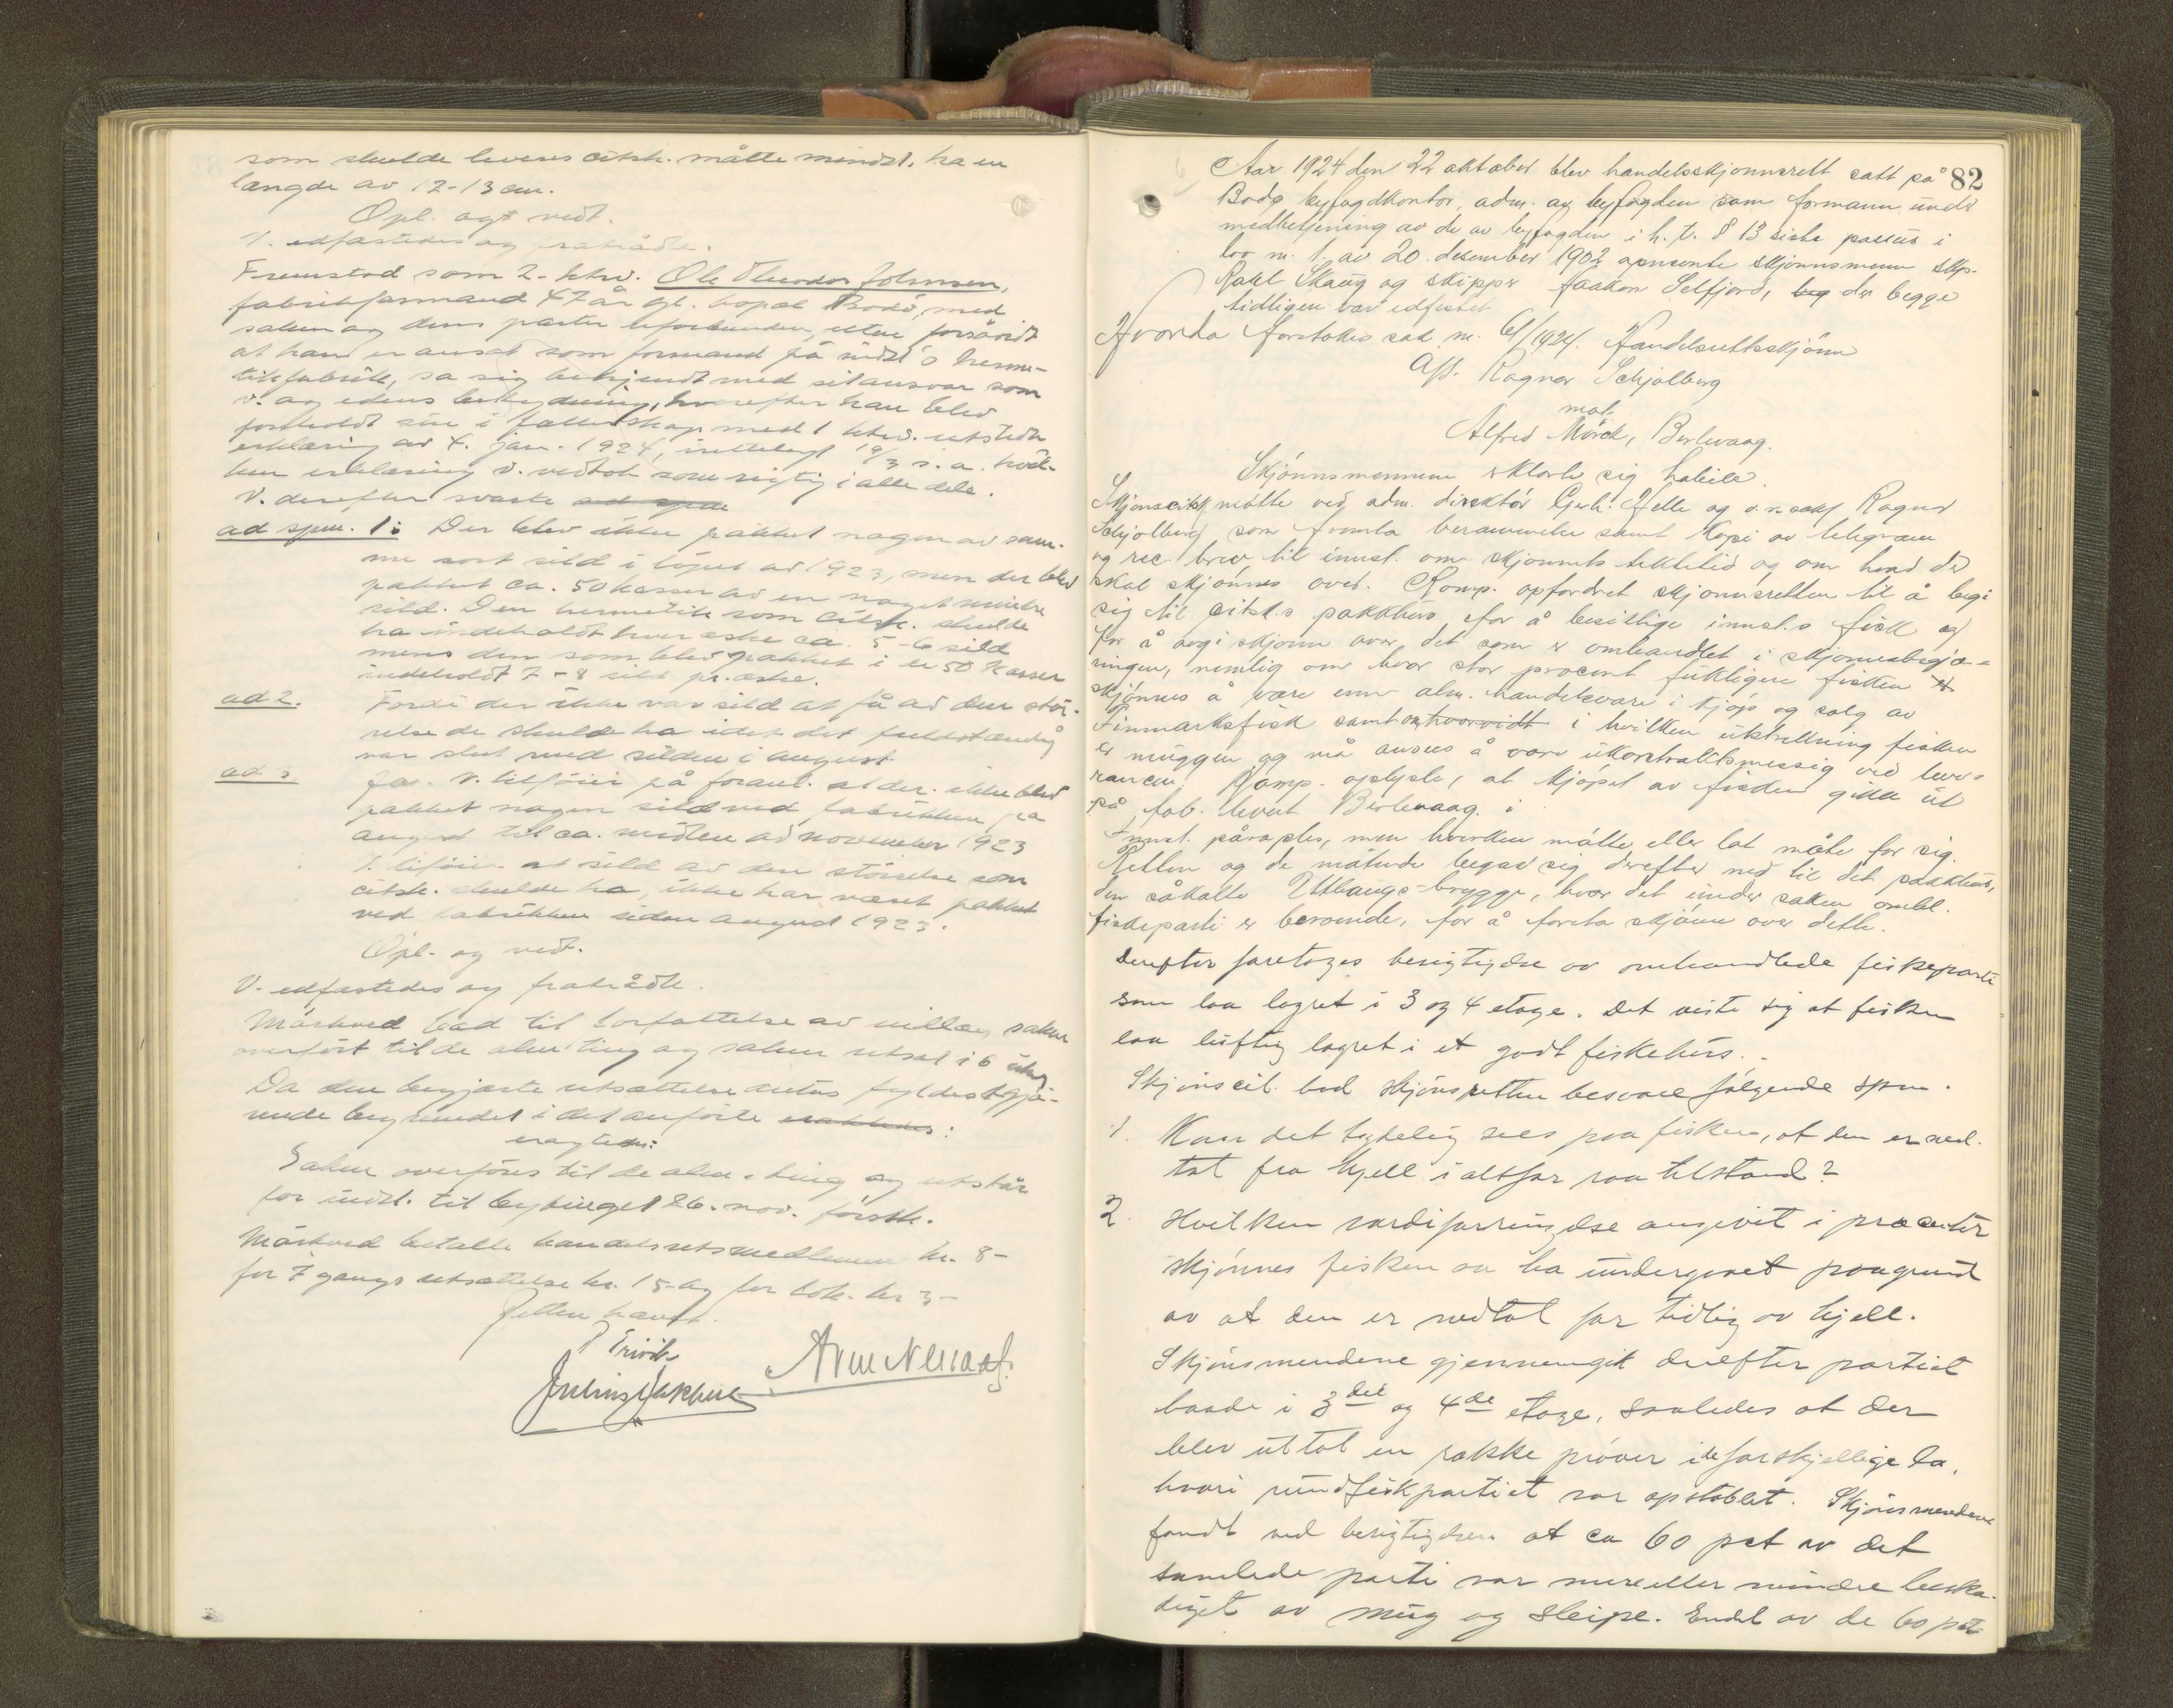 som skulde leveres citsk. måtte mindst. ha en
længde av 12-13 cm.
Opl. og vedt.
V. edfæstedes og fratrådte.
Fremstod som 2. ktrv. Ole Theodor Johnsen,
fabrikformand 47 år gl. bopæl Bodö, med
saken og dens parter uforbunden, uten forsåvidt
at han er ansat som formand på indst's herme-
tikfabrik, sa sig bekjendt med sit ansvar som
v. og edens betydning, hvorefter han blev
foreholdt sin i fællesskap med 1 ktrv. utstedte
erklæring av 4. jan. 1924, irettelagt 19/3 s. a. hvil-
ken erklæring v. vedtok som rigtig i alle dele.
V. derefter svarte
ad spm. 1: Der blev ikke pakket nogen av sam-
me sort sild i löpet av 1923, men der blev
pakket ca. 50 kasser av en noget mindre
sild. Den hermetik som citsk. skulde
ha indeholdt hver æske ca. 5-6 sild
mens den som blev pakket i de 50 kasser
indeholdt 7-8 sild pr. æske.
ad 2. Fordi der ikke var sild at få av den stör-
relse de skulde ha idet det fuldstændig
var slut med silden i august
ad 3. Ja. V. tilföier på foranl. at der ikke blev
pakket nogen sild ved fabrikken fra
august til ca. midten av november 1923
V. tilföier at sild av den störrelse som
citsk. skulde ha, ikke har været pakket
ved fabrikken siden august 1923.
Opl. og vedt.
V. edfæstedes og fratrådte.
Mörkved bad til forfattelse av indlæg saken
overfört til de alm. ting og saken utsat i 6 uker
Da den begjærte utsættelse antas fyldestgjö-
rende begrundet i det anförte
eragtedes:
Saken overföres til de alm. ting og utstår
for indst. til bytinget 26. nov. förstk.
Mörkved betalte handelsretsmedlemmene kr. 8-
for 7 gangs utsættelse kr. 15- og for tilk. kr 3-
Retten hævet.
Julius Jakhelln
82
Aar 1924 den 22 oktober blev handelsskjönnsrett satt på
Bodø byfogdkontor, adm. av byfogden som formann under
medbetjening av de av byfogden i h. t. § 13 siste passus i
lov nr. 1. av 20. desember 1902 opnevnte skjönnsmenn skp.
Rakel Skaug og skipper Haakon Selfjord, der begge
tidligere var edfestet
Hvorda foretokes sak nr. 61/1924. Handelsrettsskjönn
A/S. Ragnar Schjölberg
mot
Alfred Mörck, Berlevaag.
Skjönnsmennene erklærte sig habile.
Skjönscitsk. mötte ved adm. direktör Gerh. Helle og o.r.sakf. Ragnar
Schjölberg som fremla berammelse samt kopi av telegram
og rec. brev til innst. om skjönnets tektetid og om hvad der
skal skjönnes over. Komp. opfordret skjönnsretten til å begi
sig til citsk.s pakkhus for å besiktige innst.s fisk og
for å avgi skjönn over det som er omhandlet i skjönnsbegjæ-
ringen, nemlig om hvor stor procent fuktigere fisken
skjönnes å være enn alm. handelsvare i kjöp og salg av
Finmarksfisk samt om hvorvidt i hvilken utstrekning fisken
er muggen og må ansees å være ukontraktsmessig ved leve-
rancen. Komp. oplyste, at kjöpet av fisken gikk ut
på fob. levert Berlevaag.
Innst. påroptes, men hverken mötte eller lot möte for sig.
Retten og de mötende begav sig derefter ned til det pakkhus,
den såkalte Uttlaugs-brygge, hvor det under saken omhl.
fiskeparti er beroende, for å foreta skjönn over dette.
Derefter foretoges besigtigelse av omhandlede fiskeparti
som laa lagret i 3 og 4 etage. Det viste sig at fisken
laa luftig lagret i et godt fiskehus.
Skjönscit. bad skjönsretten besvare fölgende spm.
1. Kan det tydelig sees paa fisken, at den er ned-
tat fra hjell i altfor raa tilstand?
2. Hvilken værdiforringelse angivet i procenter
skjönnes fisken aa ha undergaaet paagrund
av at den er nedtat for tidlig av hjell.
Skjönsmændene gjennemgik derefter partiet
baade i 3die og 4de etage, saaledes at der
blev uttat en række pröver i de forskjellige la,
hvori rundfiskpartiet var opstablet. Skjönsmændene
fandt ved besigtigelsen at ca 60 pct av det
samlede parti var mere eller mindre beska-
diget av mug og sleipe. Endel av de 60 pct